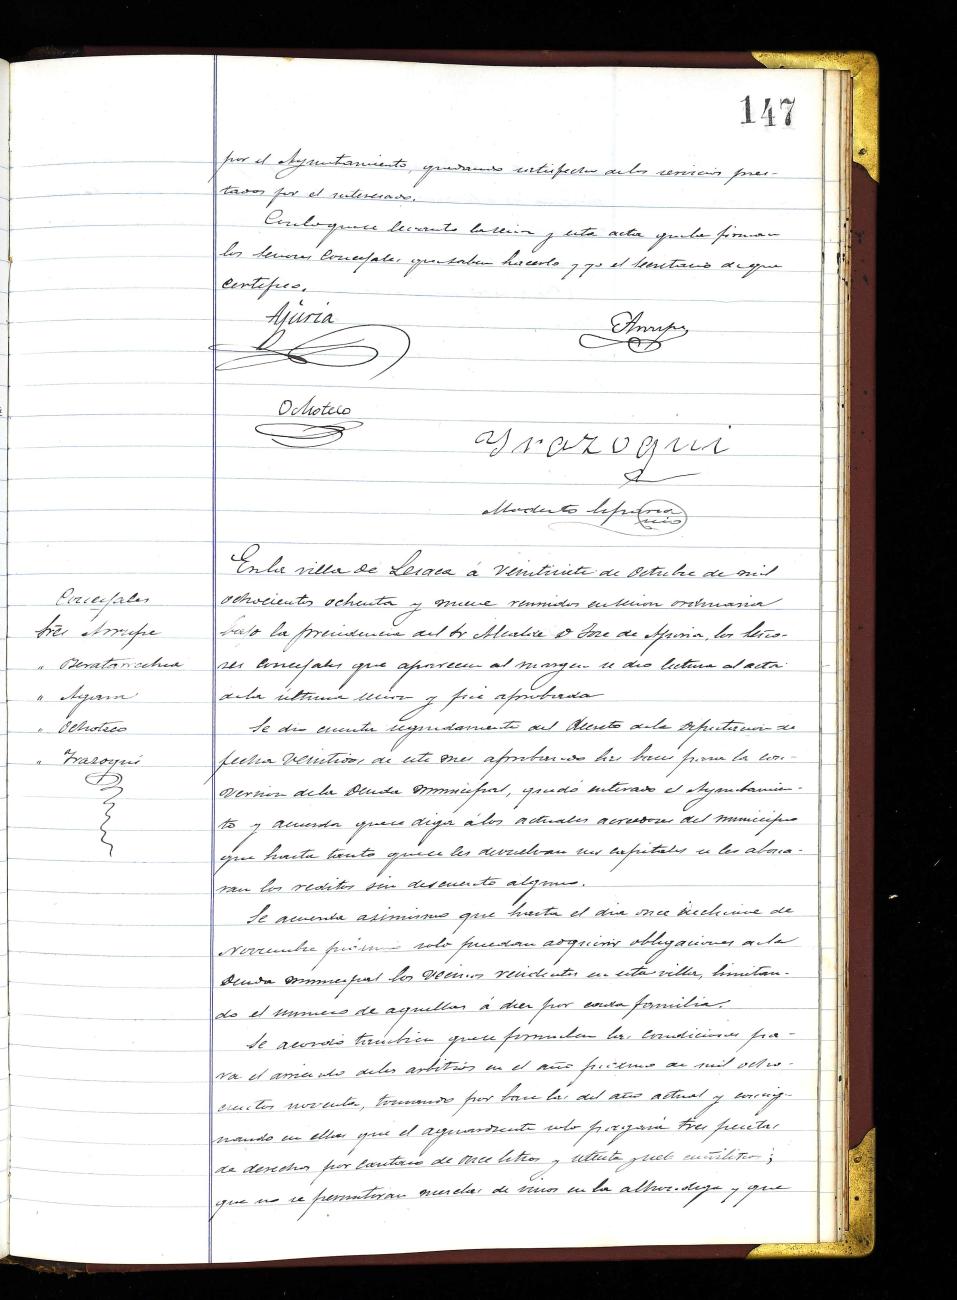 147
por el Ayuntamiento, quedando satisfecho de los servicios pres-
tados por el interesado.
Con lo que se levanto la sesion y esta acta que la firman
los Señores Concejales que saben hacerlo y yo el Secretario de que
certifico.
Ajuria
Arrupe
Ochoteco
Yrazoqui
Modesto
En la villa de Lesaca á veintisiete de Octubre de mil
ochocientos ochenta y nueve reunidos en sesion ordinaria
bajo la presidencia del Sr Alcalde D Jose de Ajuria, los Seño-
res Concejales que aparecen al margen se dio lectura al acta
de la última sesion y fué aprobada
Concejales
Sres Arrupe
" Beratarrechea
" Ochoteco
" Yrazoqui
Se dio cuenta seguidamente del decreto de la Diputacion de
fecha veintidos de este mes aprobando las bases para la con-
version de la deuda municipal, quedó enterado el Ayuntamien-
to y acuerda que se diga á los actuales acreedores del municipio
que hasta tanto que se les devuelvan sus capitales se les abona-
ran los reditos sin descuento alguno.
Se acuerda asimismo que hasta el dia once inclusive de
Noviembre próximo solo puedan adquirir obligaciones de la
deuda municipal los vecinos residentes en esta villa, limitan-
do el numero de aquellas á diez por cada familia.
Se acordó tambien que se formulen las condiciones pa-
ra el arriendo de los arbitrios en el año próximo de mil ocho-
cientos noventa, tomando por base las del año actual y consig-
nando en ellas que el aguardiente solo pagará tres pesetas
de derechos por cantaro de once litros y setenta y seis centilitros;
que no se permitiran mezclas de vinos en la alhondiga y que